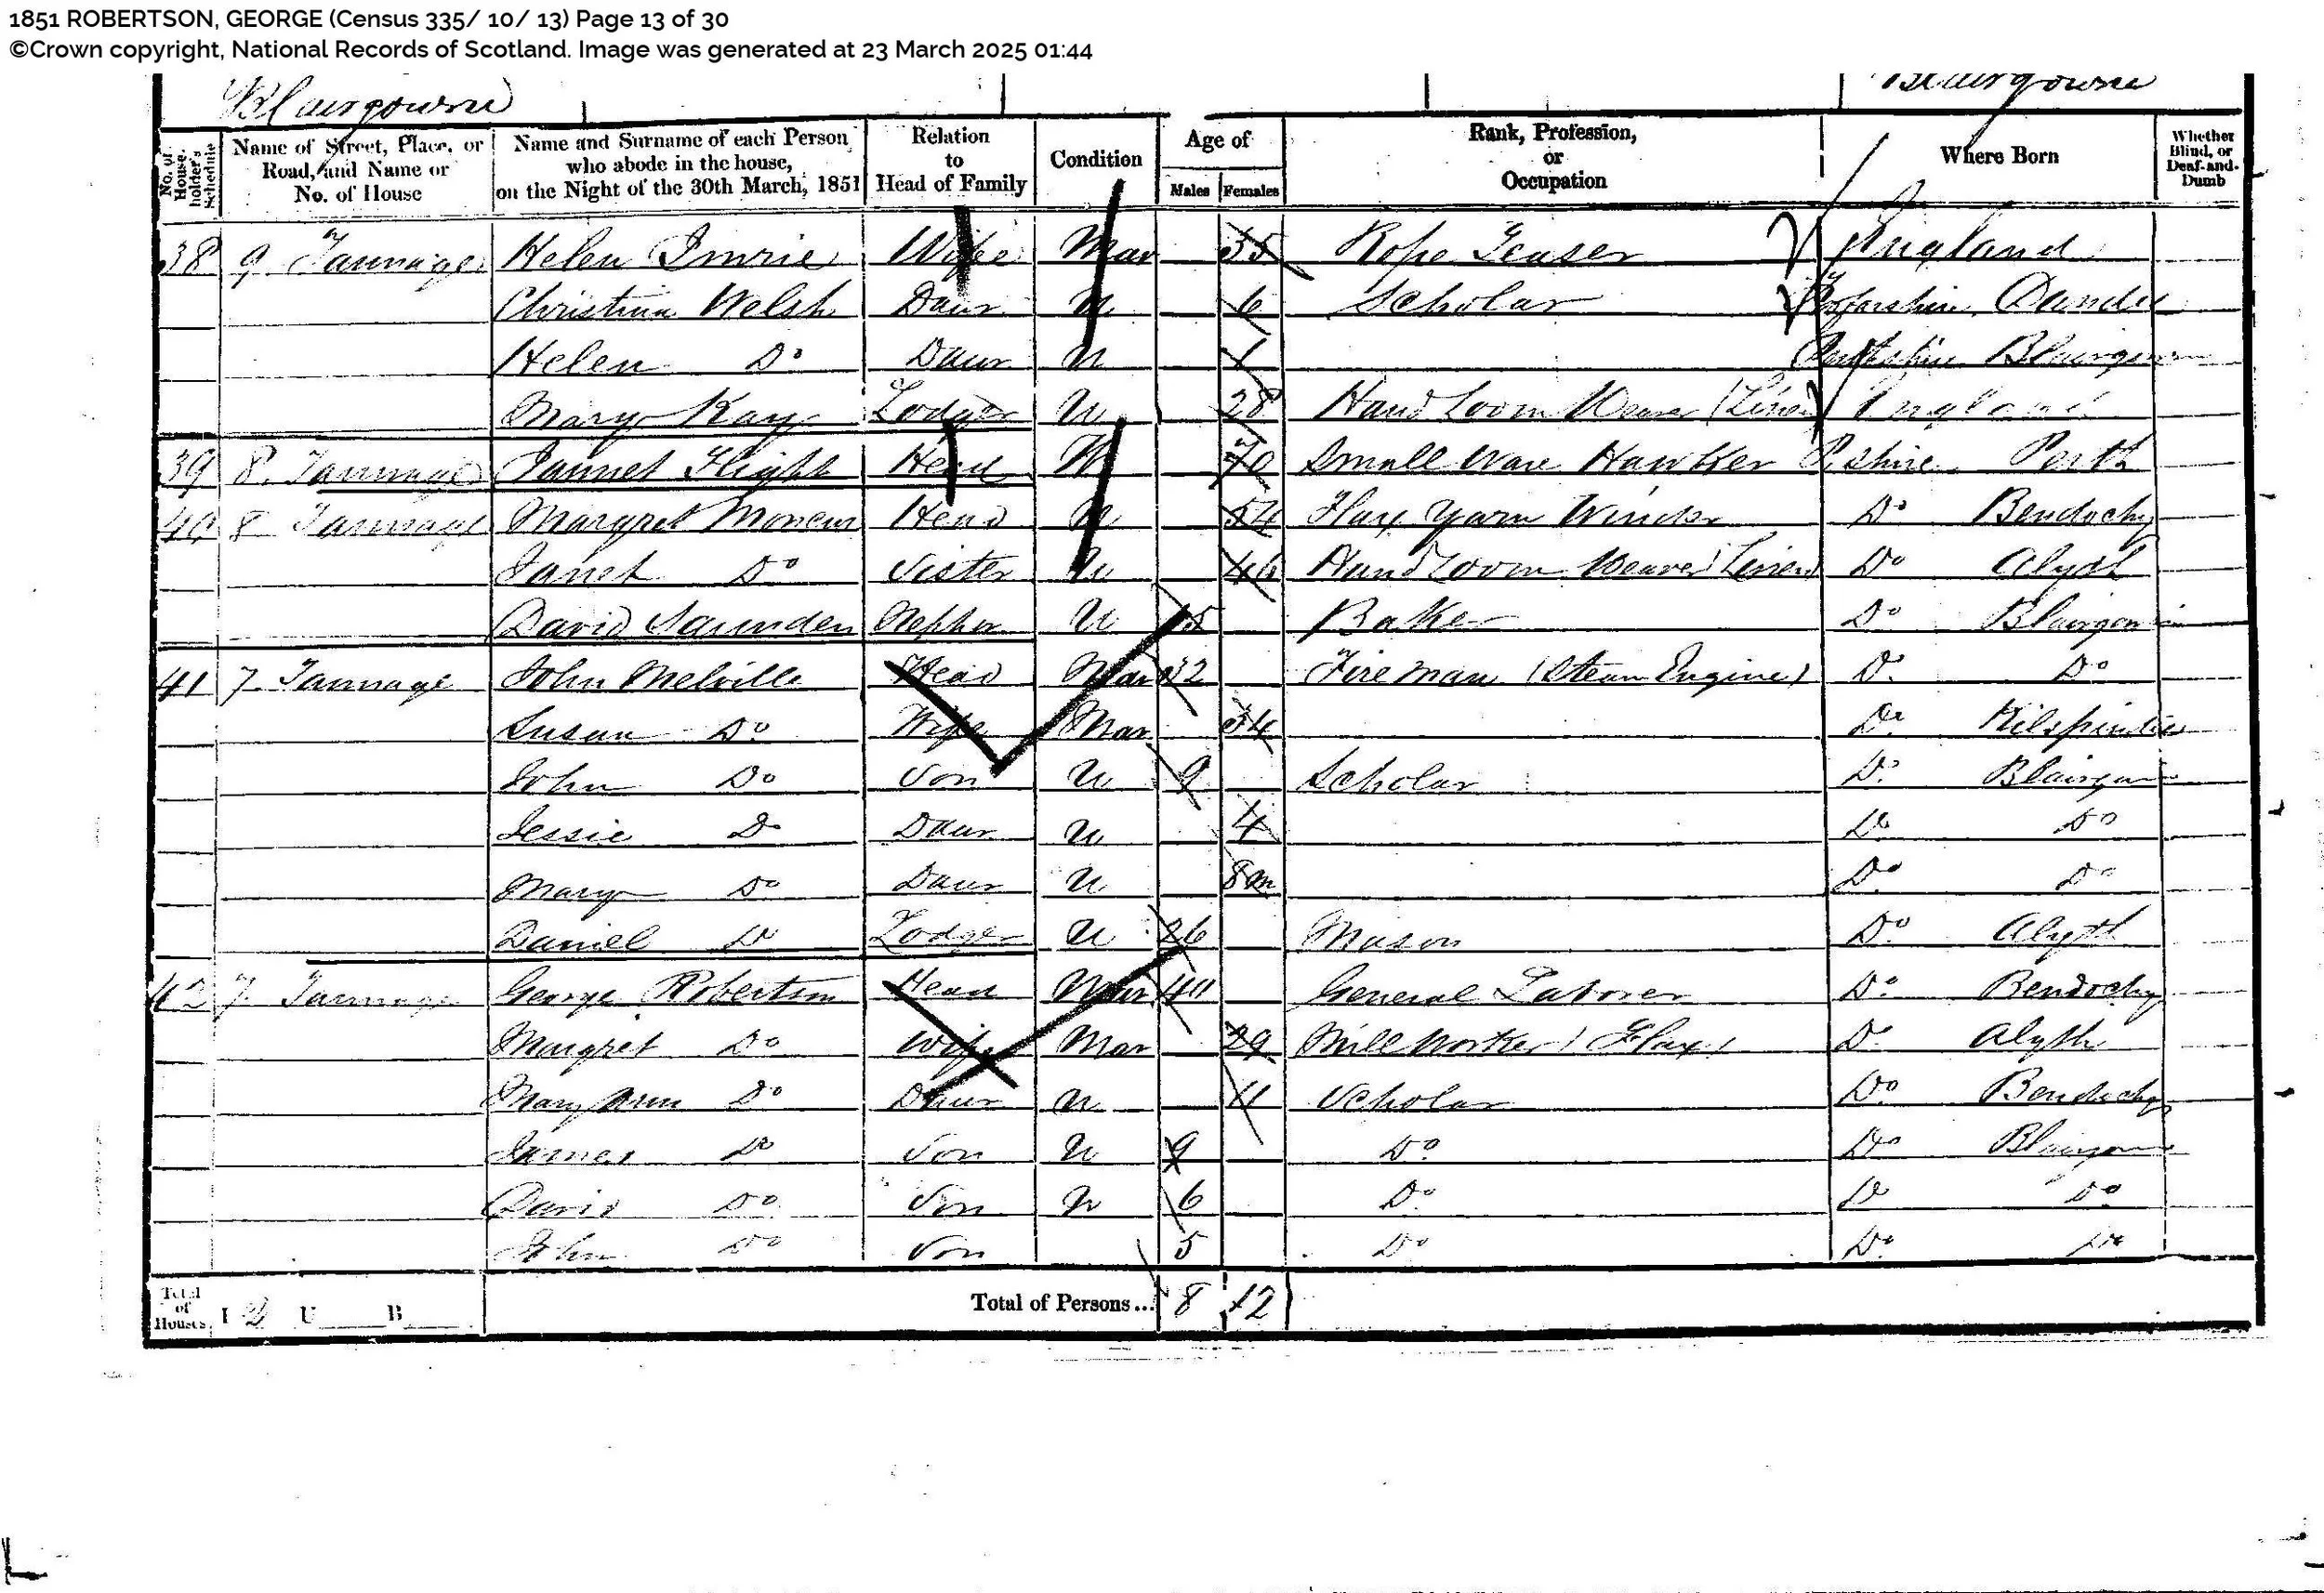 1851 ROBERTSON, GEORGE (Census 335/ 10/ 13) Page 13 of 30
©Crown copyright, National Records of Scotland. Image was generated at 23 March 2025 01:44
Blairgowrie Blairgowrie
No. of House-holder's Schedule Name of Street, Place, or Road, and Name or No. of House Name and Surname of each Person who abode in the house, on the Night of the 30th March, 1851 Relation to Head of Family Condition Age of Males Females Rank, Profession, or Occupation Where Born Whether Blind, or Deaf-and-Dumb
38 9 Tannage Helen Imrie Wife Mar 35 Rope Teaser England
Christina Welsh Daur U 6 Scholar Forfarshire Dundee
Helen Do Daur U 1 Perthshire Blairgowrie
Mary Kay Lodger U 28 Hand Loom Weaver (Linen) England
39 8 Tannage Jannet Flight Head 70 Small Ware Hawker P. Shire Perth
40 8 Tannage Margret Moncur Head U 54 Flax Yarn Winder Do Bendochy
Janet Do Sister U 46 Hand Loom Weaver (Linen) Do Alyth
David Saunders Nephew U 15 Baker Do Blairgowrie
41 7 Tannage John Melville Head Mar 32 Fireman (Steam Engine) Do Do
Susan Do Wife Mar 34 Do Kilspindie
John Do Son U 9 Scholar Do Blairgowrie
Jessie Do Daur U 4 Do Do
Mary Do Daur U 8m Do Do
Daniel Do Lodger U 26 Mason Do Alyth
42 7 Tannage George Robertson Head Mar 40 General Laborer Do Bendochy
Margret Do Wife Mar 29 Mill Worker (Flax) Do Alyth
Mary Ann Do Daur U 11 Scholar Do Bendochy
James Do Son U 9 Do Do Blairgowrie
David Do Son U 6 Do Do Do
John Do Son 5 Do Do Do
Total of Houses I 2 U B Total of Persons... 8 12